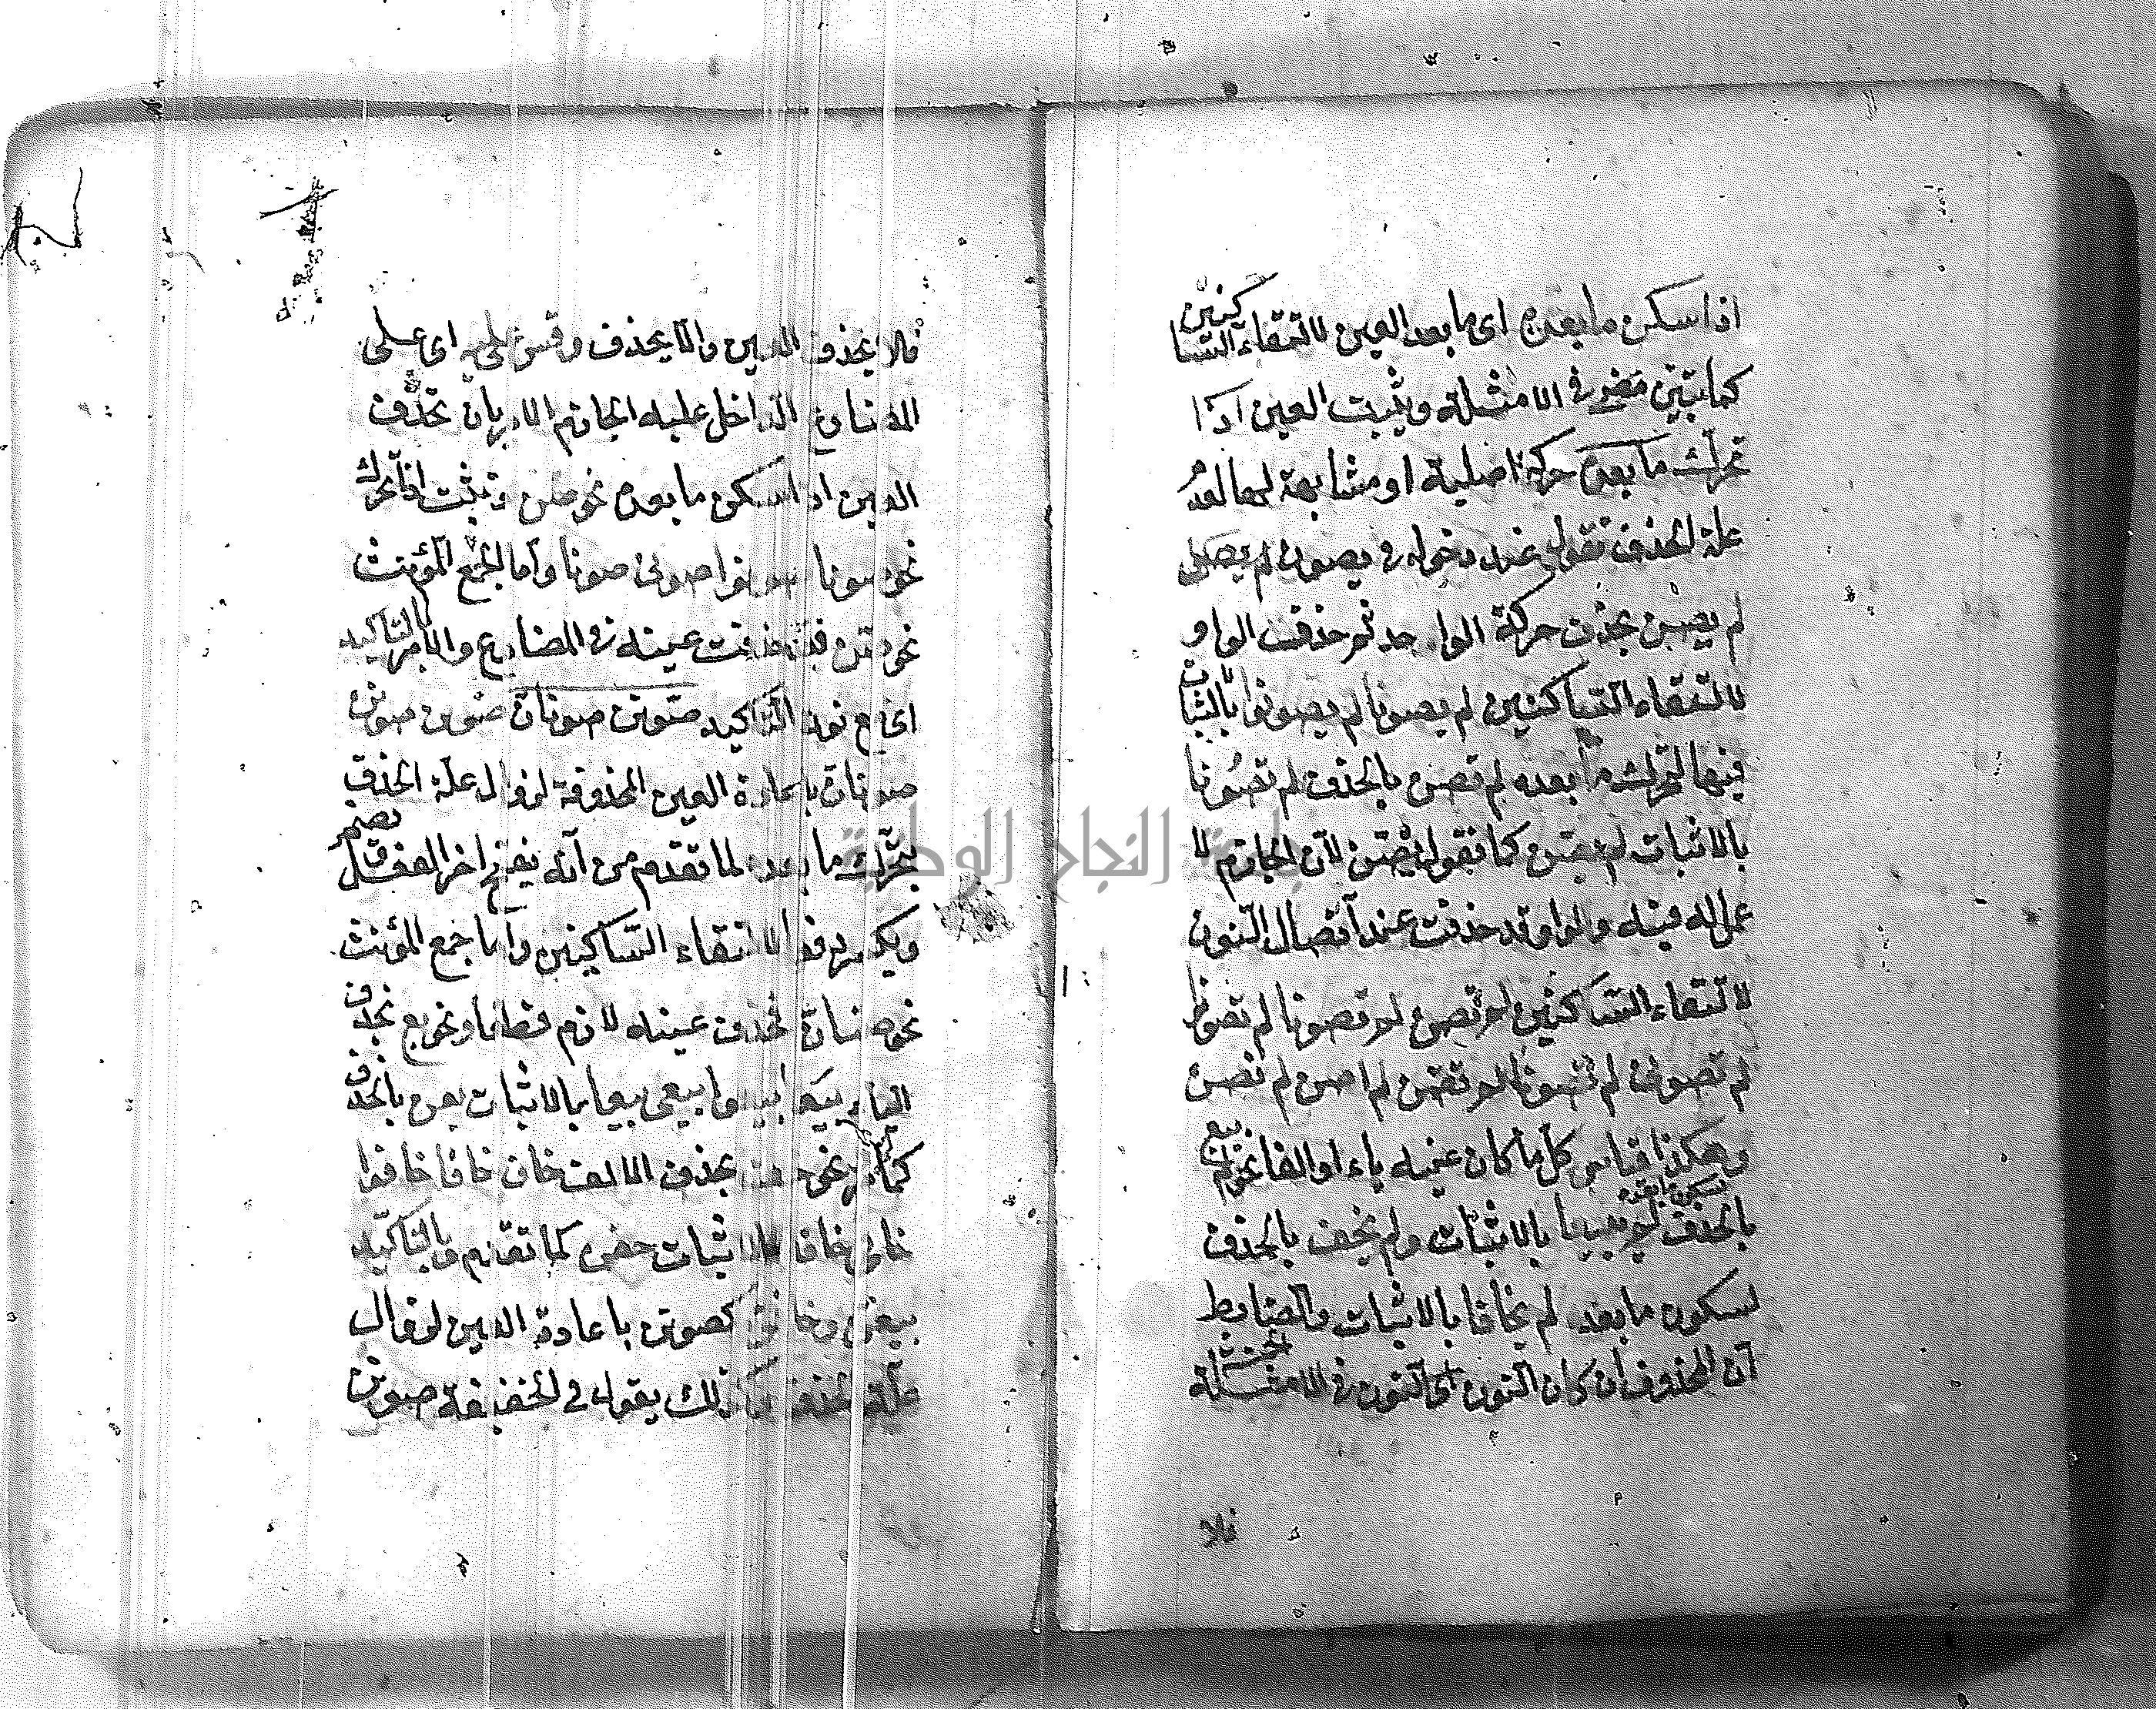 اذا سكن ما بعده اى ما بعد العين لالتقاء الساكنين
كما تبين فى الامثلة ويثبت العين اذا
تحرك ما بعده حركة اصلية او مشابهة لها لفقد
علة الحذف تقول عند دخوله فى يصون لم يصن
لم يصن بحذف حركة الواحد ثم حذفت الواو
لالتقاء الساكنين لم يصونا لم يصونوا بالثبات
فيها لتحرك ما بعده لم تصن بالحذف لم تصونا
بالاثبات لم يصن كما تقول يصن لان الجازم لا
عمل له فيه والواو قد حذفت عند اتصال النون
لالتقاء الساكنين لم تصن لم تصونا لم تصونوا
لم تصونى لم تصونا لم تصن لم اصن لم نصن
وهكذا قياس كل ما كان عينه ياء او الفا نحو لم يبع
بالحذف لسكون ما بعده لم يبيعا بالاثبات ولم يخف بالحذف
لسكون ما بعده لم يخافا بالاثبات والضابط
ان المحذوف ان كان النون اى النون فى الامثلة الخمسة
فلا
فلا يحذف العين والا يحذف وقس عليه اى على
المضارع الداخل عليه الجازم الامر بان تحذف
العين اذا سكن ما بعده نحو صن وتثبت اذا تحرك
نحو صونا صونوا صونى صونا واما الجمع المؤنث
نحو صن فقد حذفت عينه فى المضارع والامر بالتاكيد
اى مع نون التاكيد صونن صونان صونن صونن
صونان باعادة العين المحذوفة لزوال علة الحذف
بتحرك ما بعده لما تقدم من انه يفتح اخر الفعل ويضم
ويكسر دفعا لالتقاء الساكنين واما جمع المؤنث
نحو صنان فحذف عينه لازم قطعا ونحو بع بحذف
الياء بيعا بيعوا بيعى بيعا بالاثبات بعن بالحذف
كما مر نحو خف بحذف الالف خاف خافا خافوا
خافى خافا بالاثبات خفن كما تقدم وبالتاكيد
بيعن وخافن كصونن باعادة العين لزوال
علة الحذف وكذلك يقول فى الخفيفة صونن
جامعة النجاح الوطنية